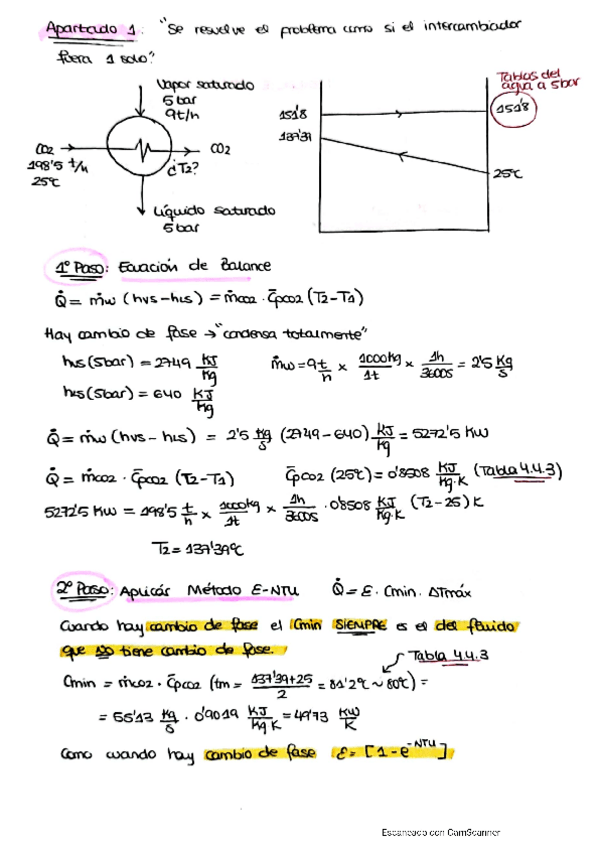 Apartado 1: "Se resuelve el problema como si el intercambiador
fuera 1 solo"
Vapor saturado
5 bar
9t/h
CO2
198'5 t/h
25ºC
CO2
¿T2?
Líquido saturado
5 bar
Tablas del
agua a 5bar
151'8
151'8
137'39
25ºC
1º Paso: Ecuación de Balance
Q̇ = ṁw (hvs-hls) = ṁco2 · C̄pco2 (T2-T1)
Hay cambio de fase → "condensa totalmente"
hvs(5bar) = 2749 KJ/Kg
ṁw = 9 t/h x 1000kg/1t x 1h/3600s = 2'5 Kg/s
hls(5bar) = 640 KJ/Kg
Q̇ = ṁw (hvs - hls) = 2'5 kg/s (2749 - 640) KJ/kg = 5272'5 KW
Q̇ = ṁco2 · C̄pco2 (T2-T1)
C̄pco2 (25ºC) = 0'8508 KJ/Kg·K (Tabla 4.4.3)
5272'5 KW = 198'5 t/h x 1000kg/1t x 1h/3600s · 0'8508 KJ/Kg·K (T2-25) K
T2 = 137'39ºC
2º Paso: Aplicar Método E-NTU Q̇ = ε · Cmin · ΔTmáx
Cuando hay cambio de fase el Cmin SIEMPRE es el del fluido
que NO tiene cambio de fase.
Tabla 4.4.3
Cmin = ṁco2 · C̄pco2 (tm = 137'39+25/2 = 81'2ºC ~ 80ºC) =
= 55'13 kg/s · 0'9019 KJ/Kg K = 49'73 KW/K
Como cuando hay cambio de fase ε = [1-e^-NTU]
Escaneado con CamScanner